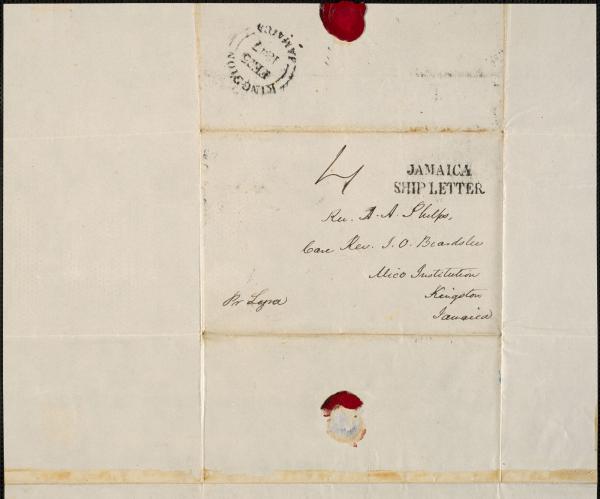 KINGSTON
FE 25
1847
JAMAICA
4
JAMAICA
SHIP LETTER
Rev. A. A. Phelps,
Care Rev. I. O. Beardslee
Mico Institution
Pr Lyra
Kingston
Jamaica